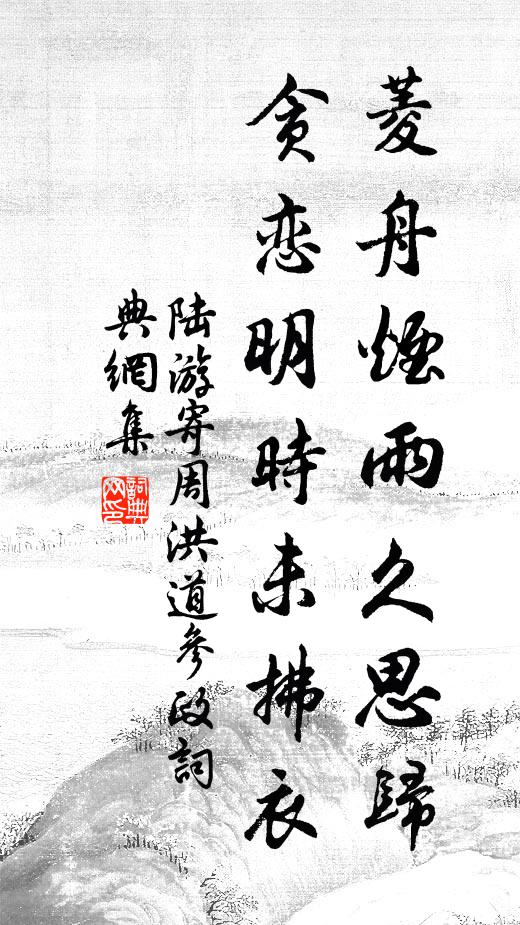 菱舟煙雨久思歸
貪恋明時未拂衣
陸游寄周洪道參政詞
典網集
詞典网印